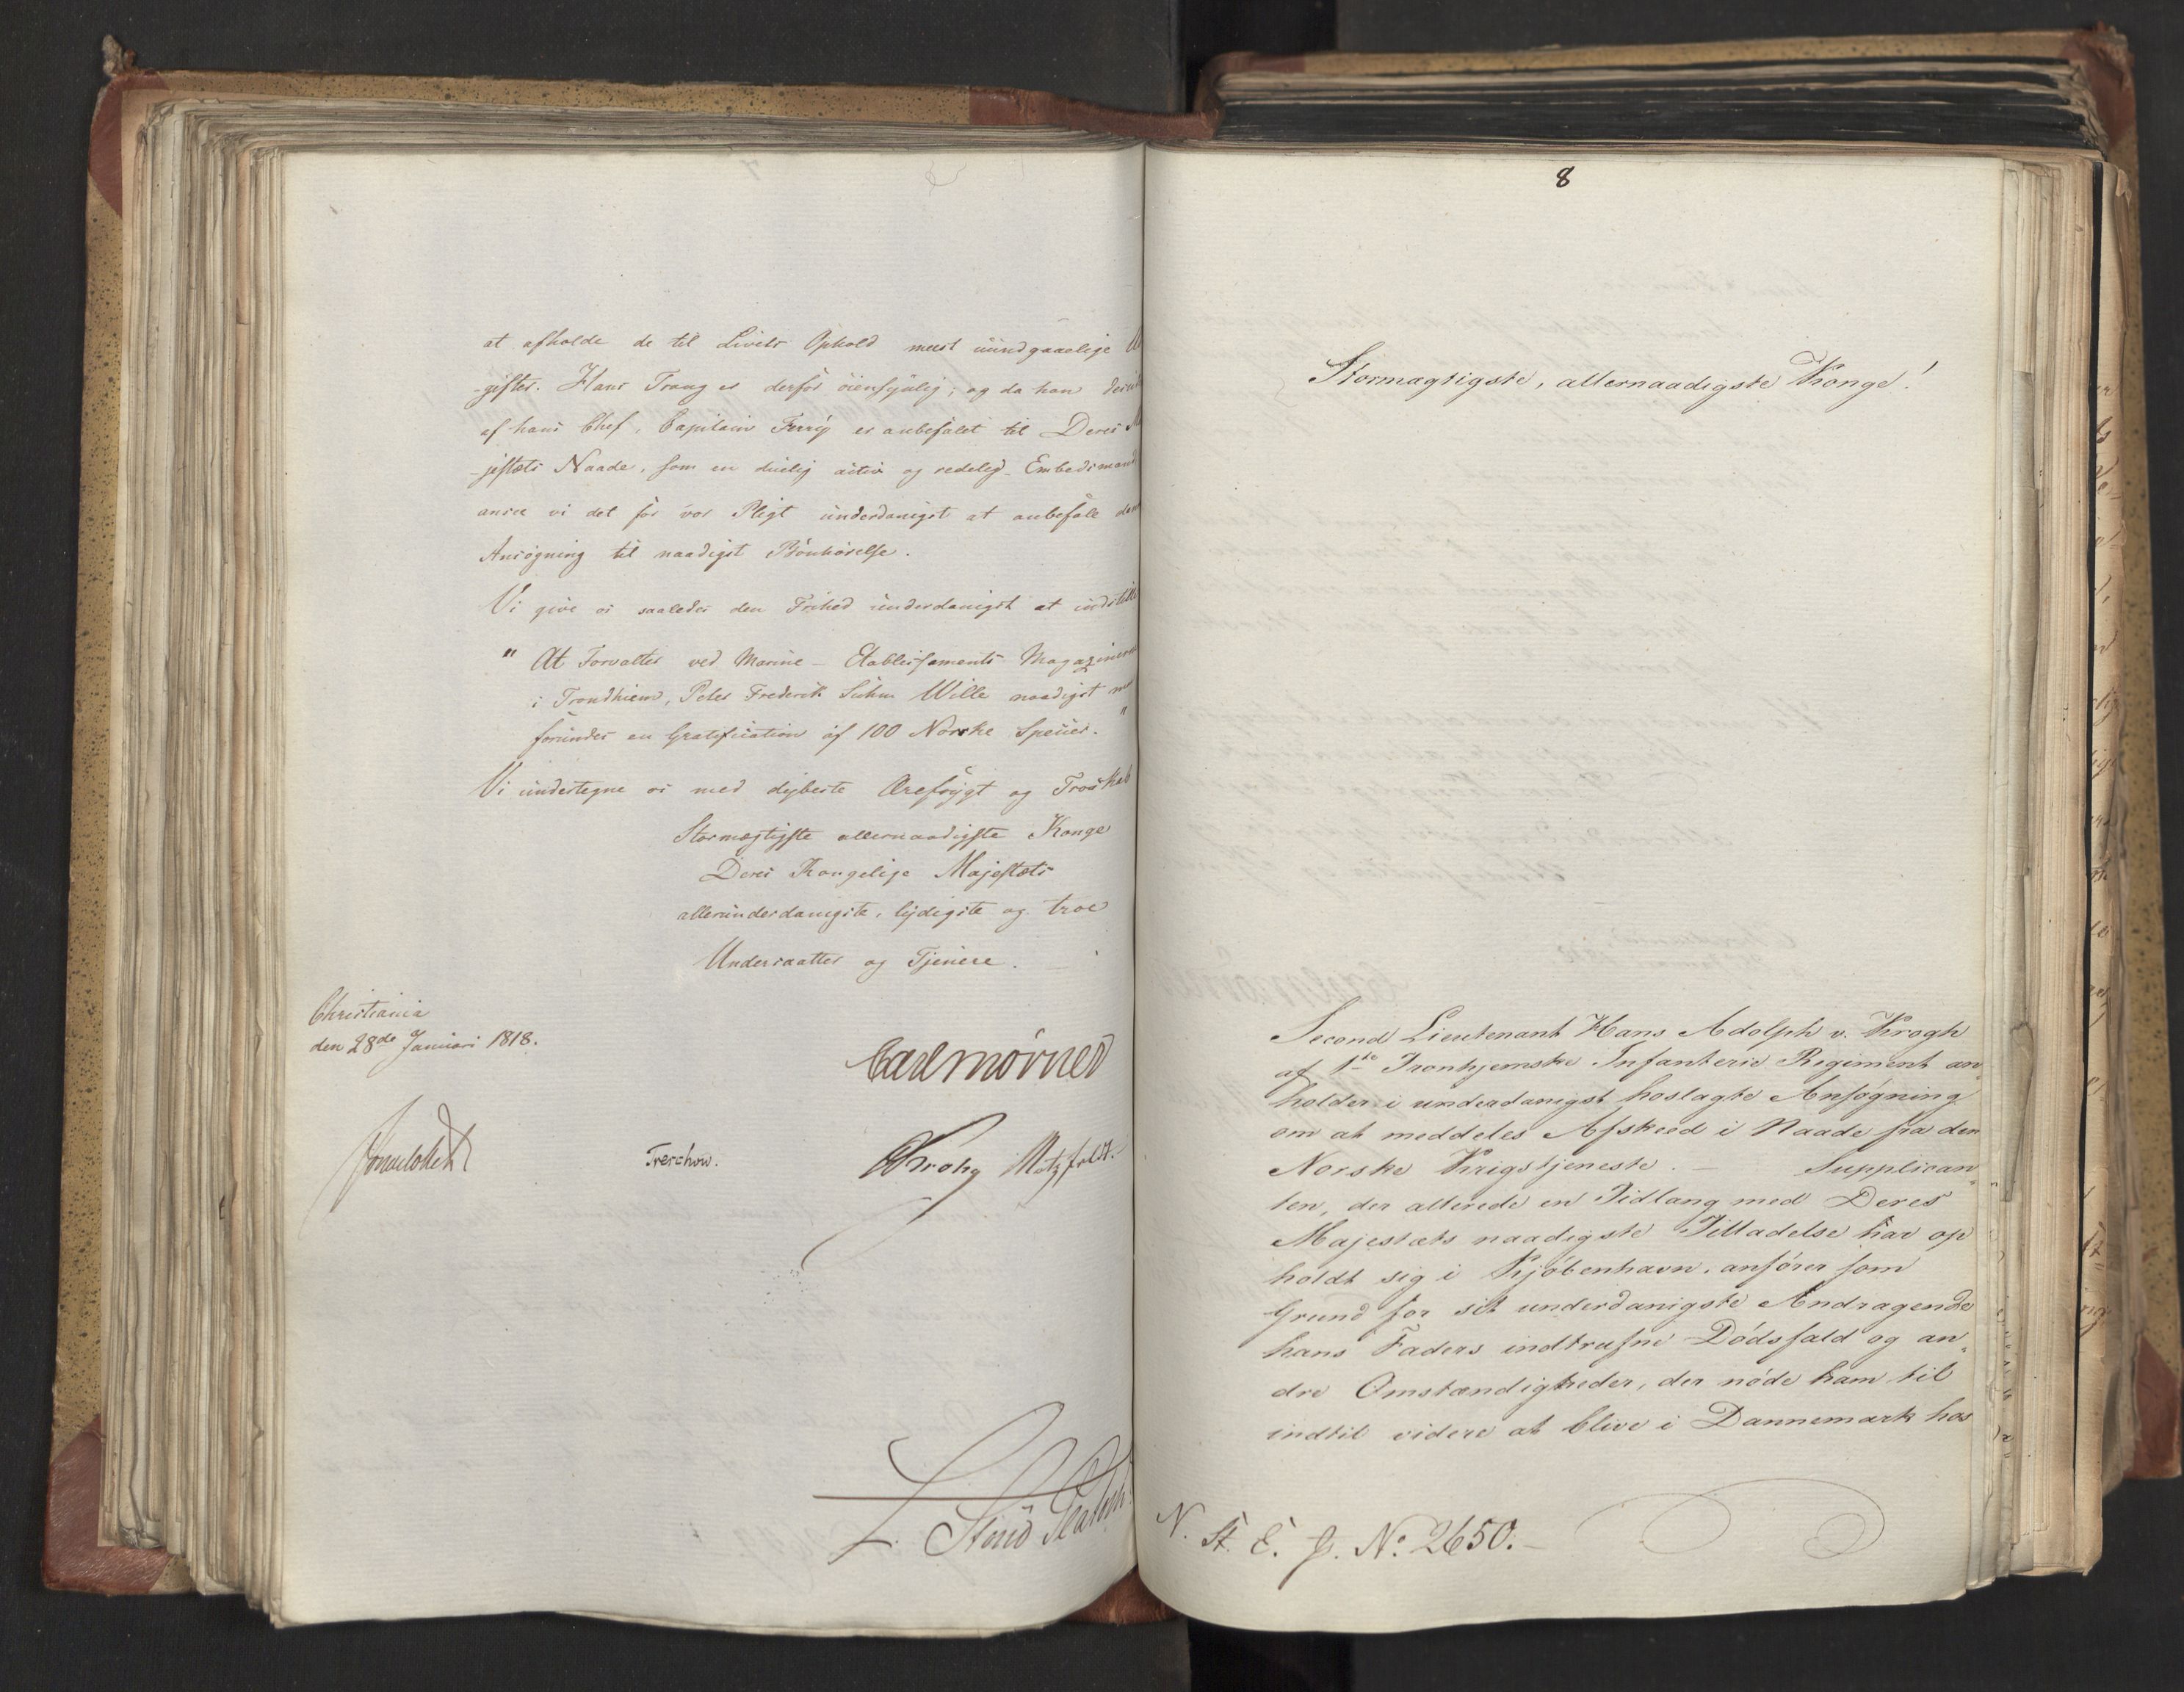 at afholde de til Livets Ophold meest uundgaaelige
-gifter. Hans Trang er derfor öiensÿnlig; og da han
af hans Chef, Capitain Ferrÿ er anbefalet til Deres
-jestæts Naade, som en duelig activ og redelig Embedsmand
ansee vi det for vor Pligt underdanigst at anbefale
Ansögning til naadigst Bönhörelse.
Vi give os saaledes den Frihed underdanigst at indstille
" At Forvalter ved Marine-Etablissements Magazinerne
i Trondhiem, Peter Frederik Suhm Wille naadigst
forundes en Gratification af 100 Norske Specier. "
Vi undertegne os med dybeste Ærefrygt og Troskab
Stormægtigste allernaadigste Konge
Deres Kongelige Majestæts
allerunderdanigste, lydigste og troe
Undersaatter og Tjenere.
Christiania
den 28de Januari 1818.
Carl Mörner
Sommerfeldt
Treschow.
Krohg Motzfeldt.
8
Stormægtigste, allernaadigste Konge!
Second Lieutenant Hans Adolph v. Krogh
af 1te Tronhjemske Infanterie Regiment an„
holder i underdanigst hoslagte Ansøgning
om at meddeles Afskeed i Naade fra den
Norske Krigstjeneste. — Supplican„
ten, der allerede en Tidlang med Deres
Majestæts naadigste Tilladelse har op
holdt sig i Kjøbenhavn, anfører som
Grund for sit underdanigste Andragende
hans Faders indtrufne Dødsfald og an„
dre Omstændigheder, der nøde ham til
indtil videre at blive i Dannemark hos
N. St. E. J. No. 2650.